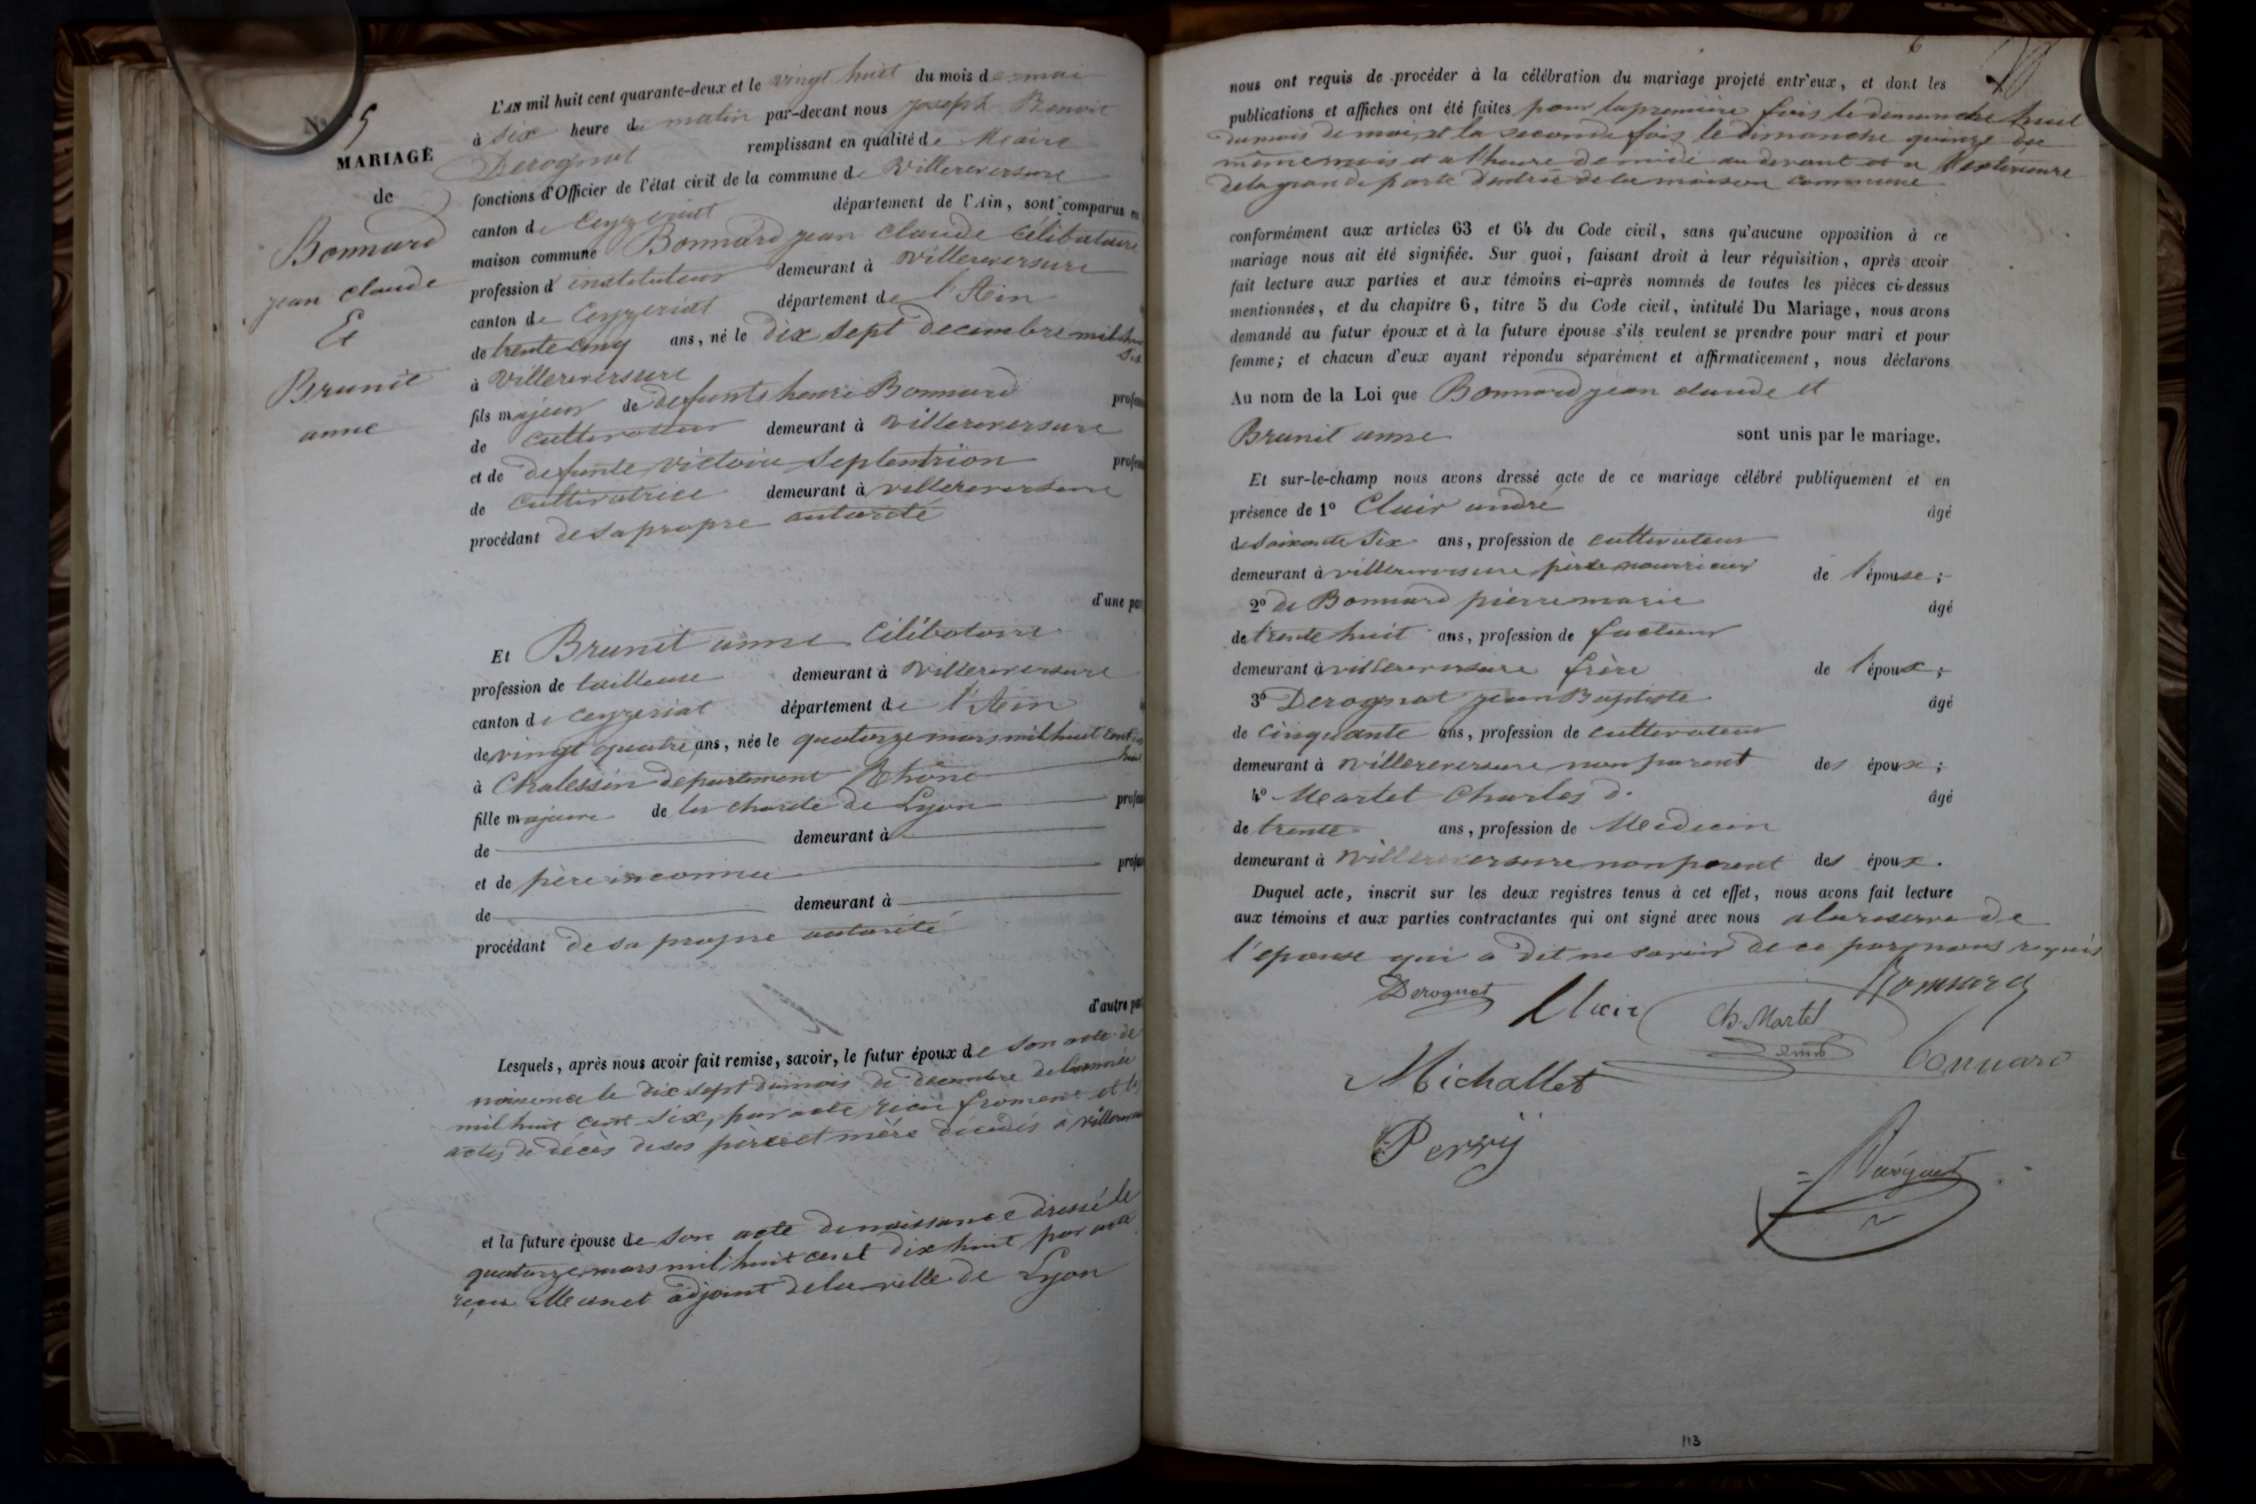 N° 5
MARIAGE
de
Bonnard
jean claude
Et
Brunit
anne
L'AN mil huit cent quarante-deux et le vingt huit du mois de mai
à six heure du matin par-devant nous joseph Benoit
Derognat remplissant en qualité de Maire
fonctions d'Officier de l'état civil de la commune de Villereversure
canton de Ceyzeriat département de l'Ain, sont comparus en
maison commune Bonnard jean claude Célibataire
profession d'instituteur demeurant à Villereversure
canton de Ceyzeriat département de l'Ain
de trente cinq ans, né le dix sept decembre mil huit
six
à Villereversure
fils majeur de defunts henri Bonnard profes
de cultivateur demeurant à villereversure
et de defunte victoire Septentrion profes
de cultivatrice demeurant à villereversure
procédant de sa propre autorité
d'une par
Et Brunit anne Célibataire
profession de tailleuse demeurant à Villereversure
canton de ceyzeriat département de l'Ain
de vingt quatre ans, née le quatorze mars mil huit cent dix
huit
à Chalessin departement Rhône
fille majeure de la charité de Lyon profes
de demeurant à
et de père inconnu profes
de demeurant à
procédant de sa propre autorité
d'autre par
Lesquels, après nous avoir fait remise, savoir, le futur époux de son acte de
naissance le dix sept du mois de decembre de l'année
mil huit cent six, par acte reçu froment et les
actes de décès de ses père et mère décédés à villerever
et la future épouse de son acte de naissance dressé le
quatorze mars mil huit cent dix huit par acte
reçu adjoint de la ville de Lyon
6
nous ont requis de procéder à la célébration du mariage projeté entr'eux, et dont les
publications et affiches ont été faites pour la première fois le dimanche huit
du mois de mai, et la seconde fois le dimanche quinze du
même mois et a l'heure de midi au devant et a l'exterieure
de la grande porte d'entrée de la maison commune
conformément aux articles 63 et 64 du Code civil, sans qu'aucune opposition à ce
mariage nous ait été signifiée. Sur quoi, faisant droit à leur réquisition, après avoir
fait lecture aux parties et aux témoins ci-après nommés de toutes les pièces ci-dessus
mentionnées, et du chapitre 6, titre 5 du Code civil, intitulé Du Mariage, nous avons
demandé au futur époux et à la future épouse s'ils veulent se prendre pour mari et pour
femme; et chacun d'eux ayant répondu séparément et affirmativement, nous déclarons
Au nom de la Loi que Bonnard jean claude et
Brunit anne sont unis par le mariage.
Et sur-le-champ nous avons dressé acte de ce mariage célébré publiquement et en
présence de 1° Clair andré âgé
de soixante six ans, profession de cultivateur
demeurant à villereversure père nourricier de l'épouse;
2° de Bonnard pierre marie âgé
de trente huit ans, profession de facteur
demeurant à villereversure frère de l'époux;
3° Derognat jean Baptiste âgé
de cinquante ans, profession de cultivateur
demeurant à villereversure non parent des époux;
4° Martel Charles d. âgé
de trente ans, profession de Médecin
demeurant à villereversure non parent des époux.
Duquel acte, inscrit sur les deux registres tenus à cet effet, nous avons fait lecture
aux témoins et aux parties contractantes qui ont signé avec nous a la reserve de
l'épouse qui a dit ne savoir de ce par nous requis
Derognat Clair Ch. Martel Bonnard
Bonnard
Michallet
Perrij
113